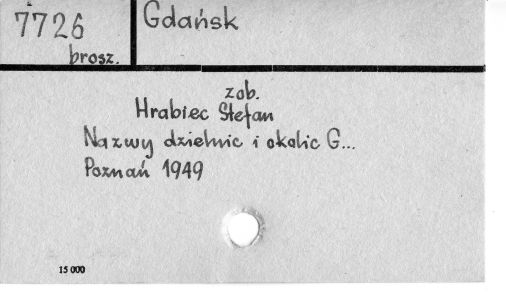 7726
brosz.
Gdańsk
zob.
Hrabiec Stefan
Nazwy dzielnic i okolic G...
Poznań 1949
15 000